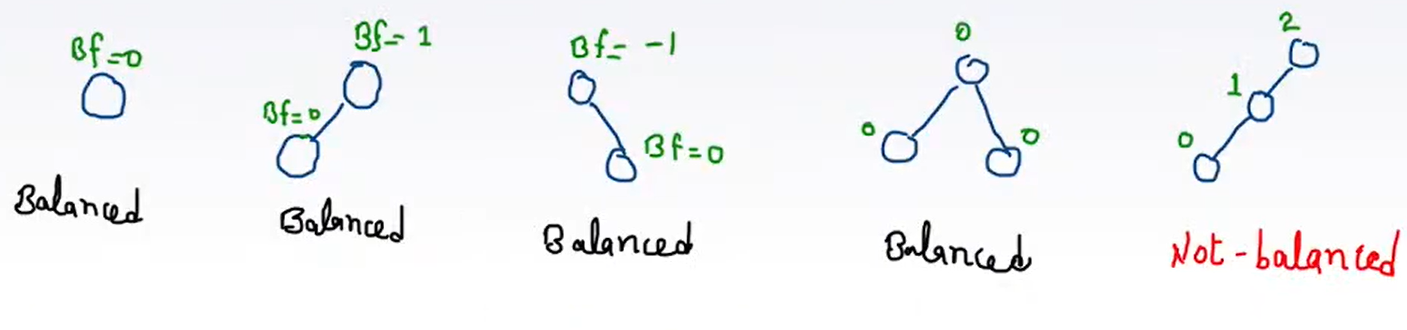 Bf=0
Balanced
Bf= 1
Bf=0
Balanced
Bf= -1
Bf=0
Balanced
0
0
0
Balanced
2
1
0
Not-balanced